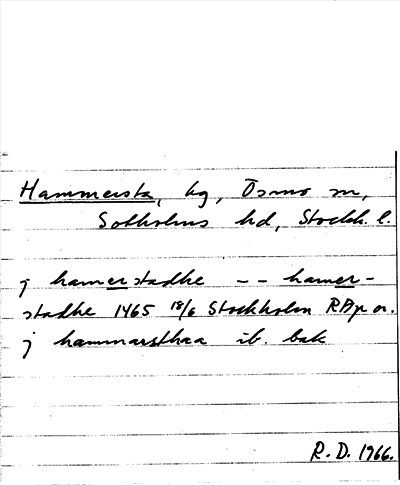 Hammersta, hg, Ösmo sn,
Sotholms hd, Stockh. l.
j hamerstadhe -- hamer-
stadhe 1465 18/6 Stockholm RAp or.
j hammarsthaa ib. bak
R.D. 1966.